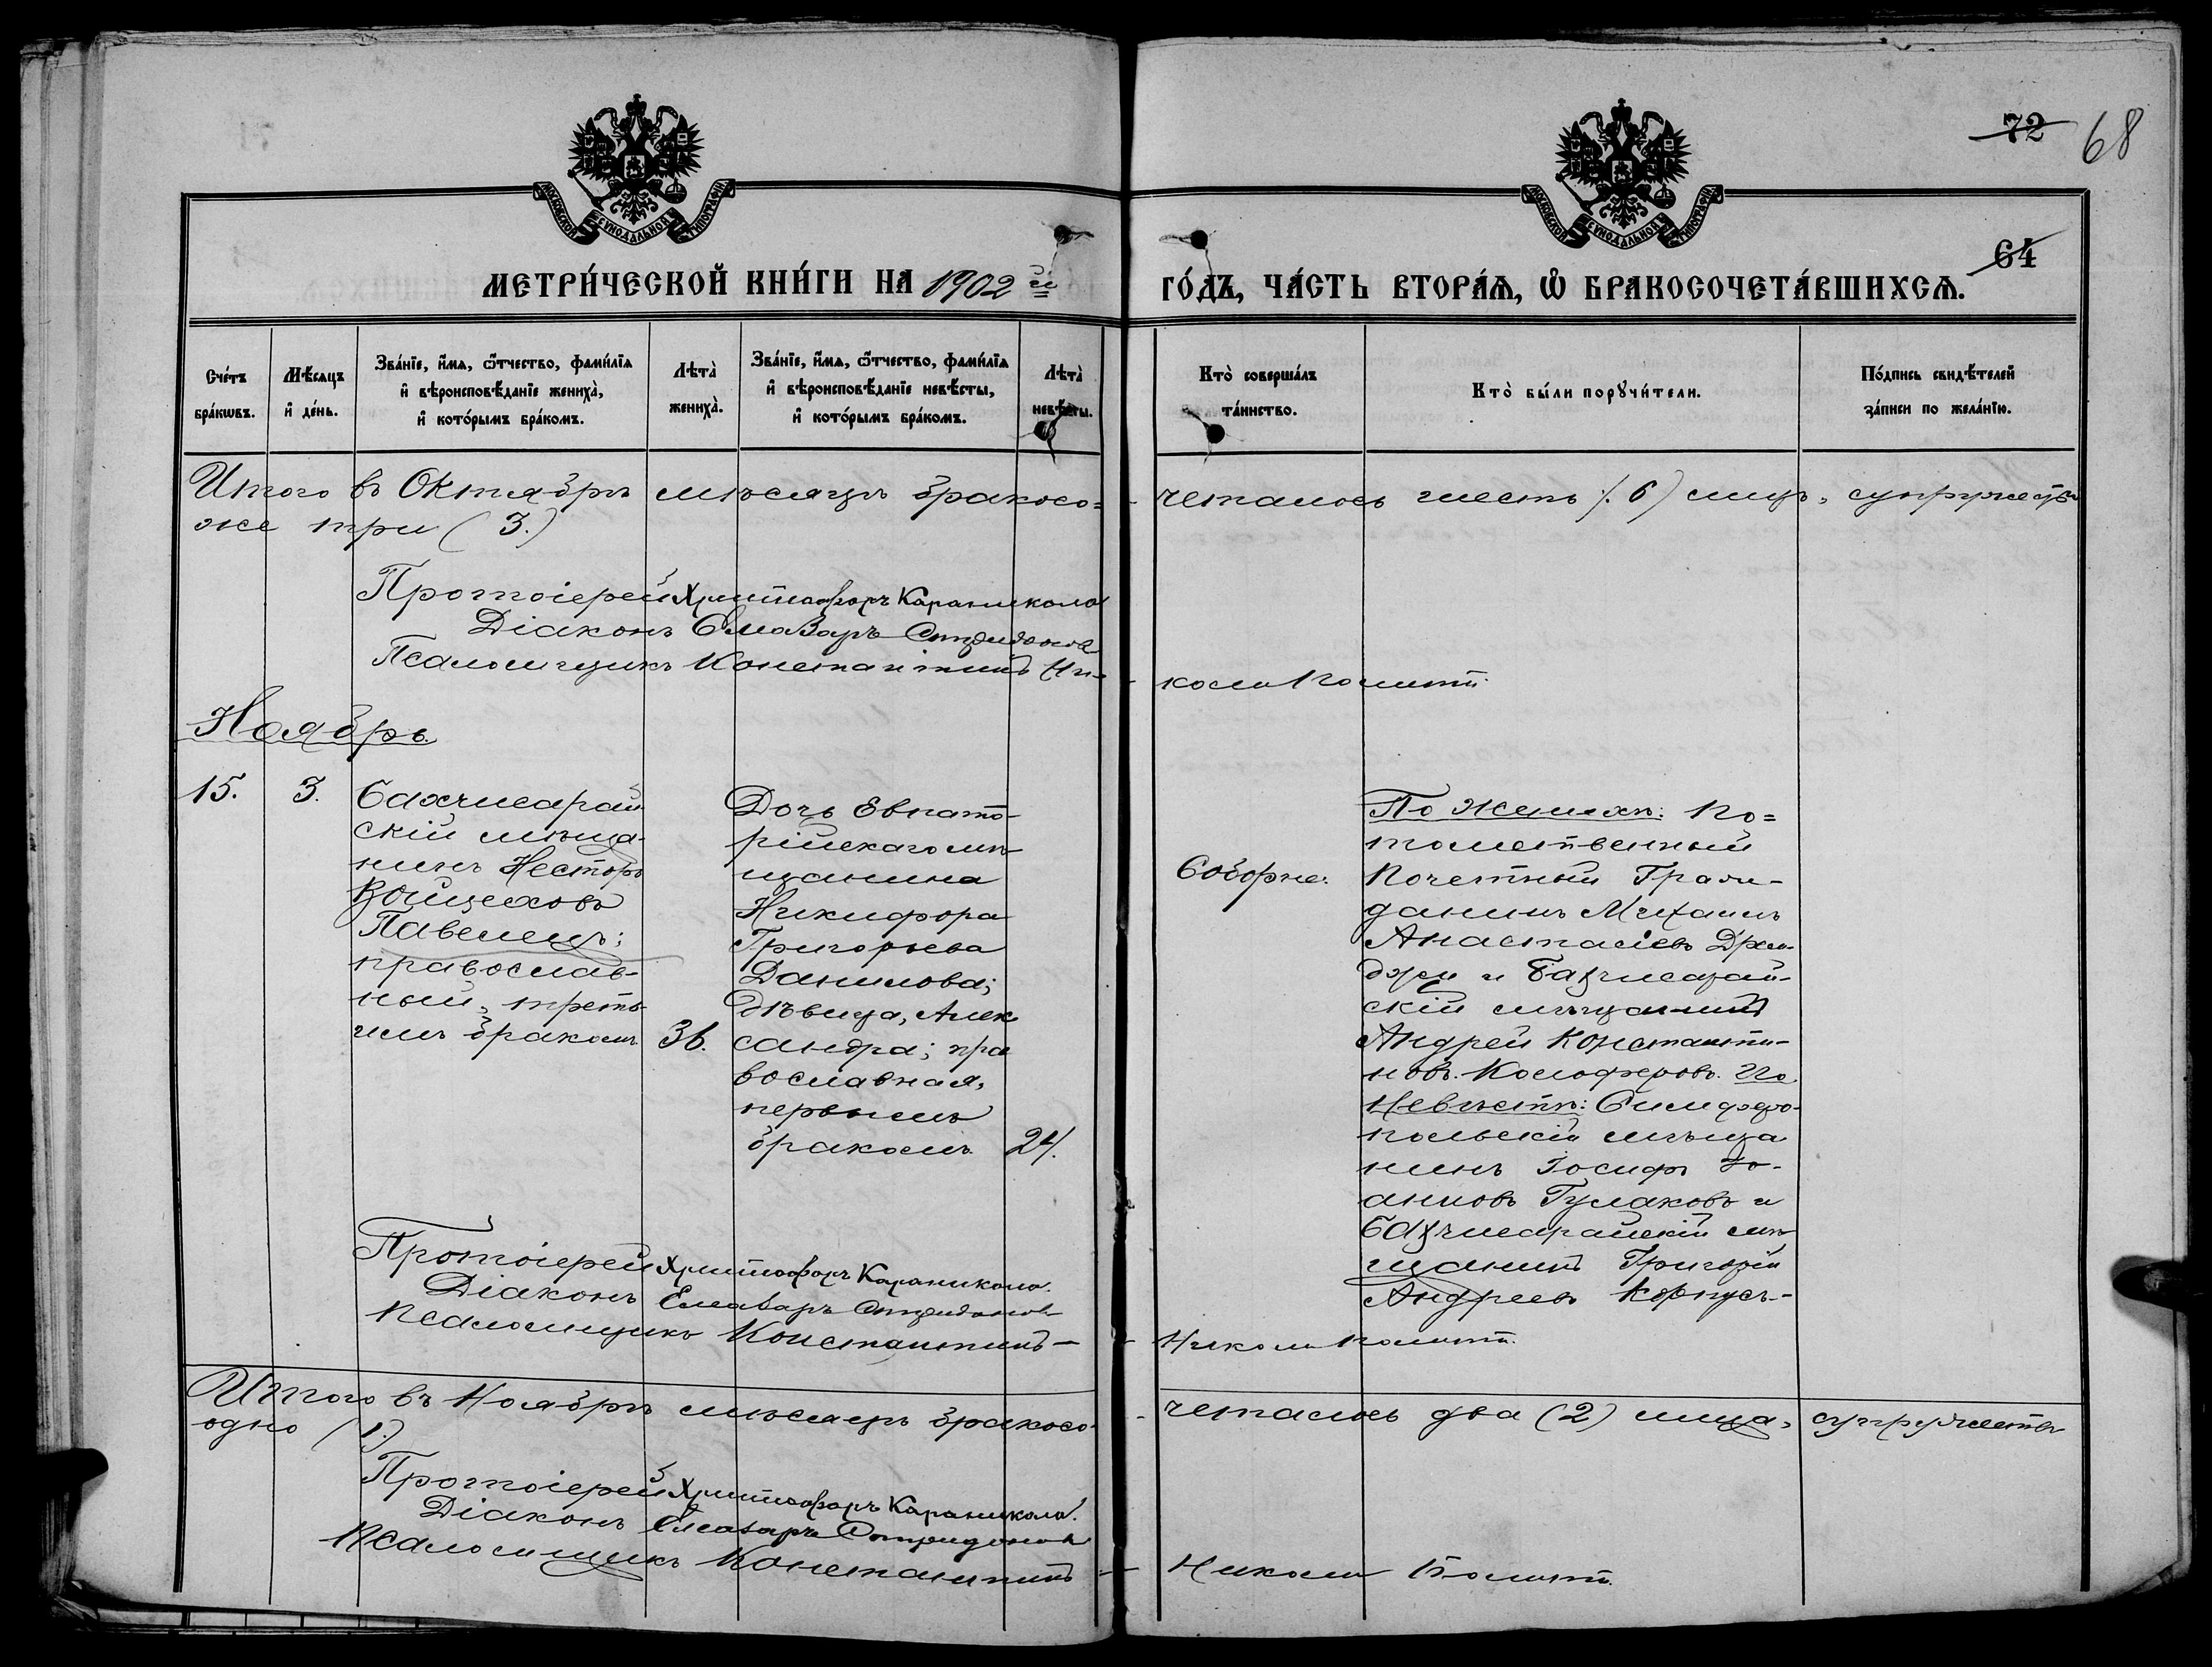 72 68
64
МОСКОВСКОЙ СѴНОДАЛЬНОЙ ТИПОГРАФІИ
МОСКОВСКОЙ СѴНОДАЛЬНОЙ ТИПОГРАФІИ
МЕТРИ́ЧЕСКОЙ КНИ́ГИ НА 1902 й ГО́ДЪ, ЧА́СТЬ ВТОРА́Ѧ, Ѽ БРАКОСОЧЕТА́ВШИХСѦ.
Сче́тъ
бра́кωвъ.
Мѣ́сѧцъ
и҆ де́нь.
Зва́нїе, и҆́мѧ, ѻ҆́тчество, фамнлїѧ
и҆ вѣроисповѣ́данїе жениха̀,
и҆ кото́рымъ бра́комъ.
Лѣта̀
жениха̀.
Зва́нїе, и҆́мѧ, ѻ҆́тчество, фами́лїѧ
и҆ вѣроисповѣ́данїе невѣ́сты,
и҆ кото́рымъ бра́комъ.
Лѣта̀
невѣ́сты.
Кто̀ соверша́лъ
та́инство.
Кто̀ бы́ли порꙋчи́тели.
По́дпись свидѣ́телей
за́писи по жела́нїю.
Итого въ Октябрѣ мѣсяцѣ бракосо=четалось шесть (6) лицъ, супружествъ
же три (3.)
Протоіерей Христофоръ Караникола
Діаконъ Елеазаръ Спиридонов
Псаломщикъ Константинъ Ни-
коли Полити.
Ноябрь.
15.
3.
Бахчисарай
скій мѣща-
нинъ Несторъ
Войцеховъ
Павелецъ;
православ-
ный, треть
имъ бракомъ
36.
Дочь Евпато-
рійскаго мѣ
щанина
Никифора
Григорьева
Данилова;
дѣвица, Алек
сандра; пра
вославная,
первымъ
бракомъ
24.
Соборне.
По Женихѣ: По=
томственный
Почетный Граж-
данинъ Михаилъ
Анастасіевъ
и Бахчисарай-
скій мѣщанинъ
Андрей Константи-
новъ. По
Невѣстѣ: Симферо-
польскій мѣща
нинъ Іосифъ Іо-
анновъ Гулаковъ и
Бахчисарайскій мѣ
щанинъ Григорій
Андреевъ Корпусъ-
Протоіерей Христофоръ Караникола.
Діаконъ Елеазаръ Спиридонов
Псаломщикъ Константинъ —
Николи Полити.
Итого въ Ноябрѣ мѣсяцѣ бракосо-четалось два (2) лица, супружествъ
одно (1.)
Протоіерей Христофоръ Караникола.
Діаконъ Елеазаръ Спиридонов
Псаломщикъ Константинъ —
Николи Полити.